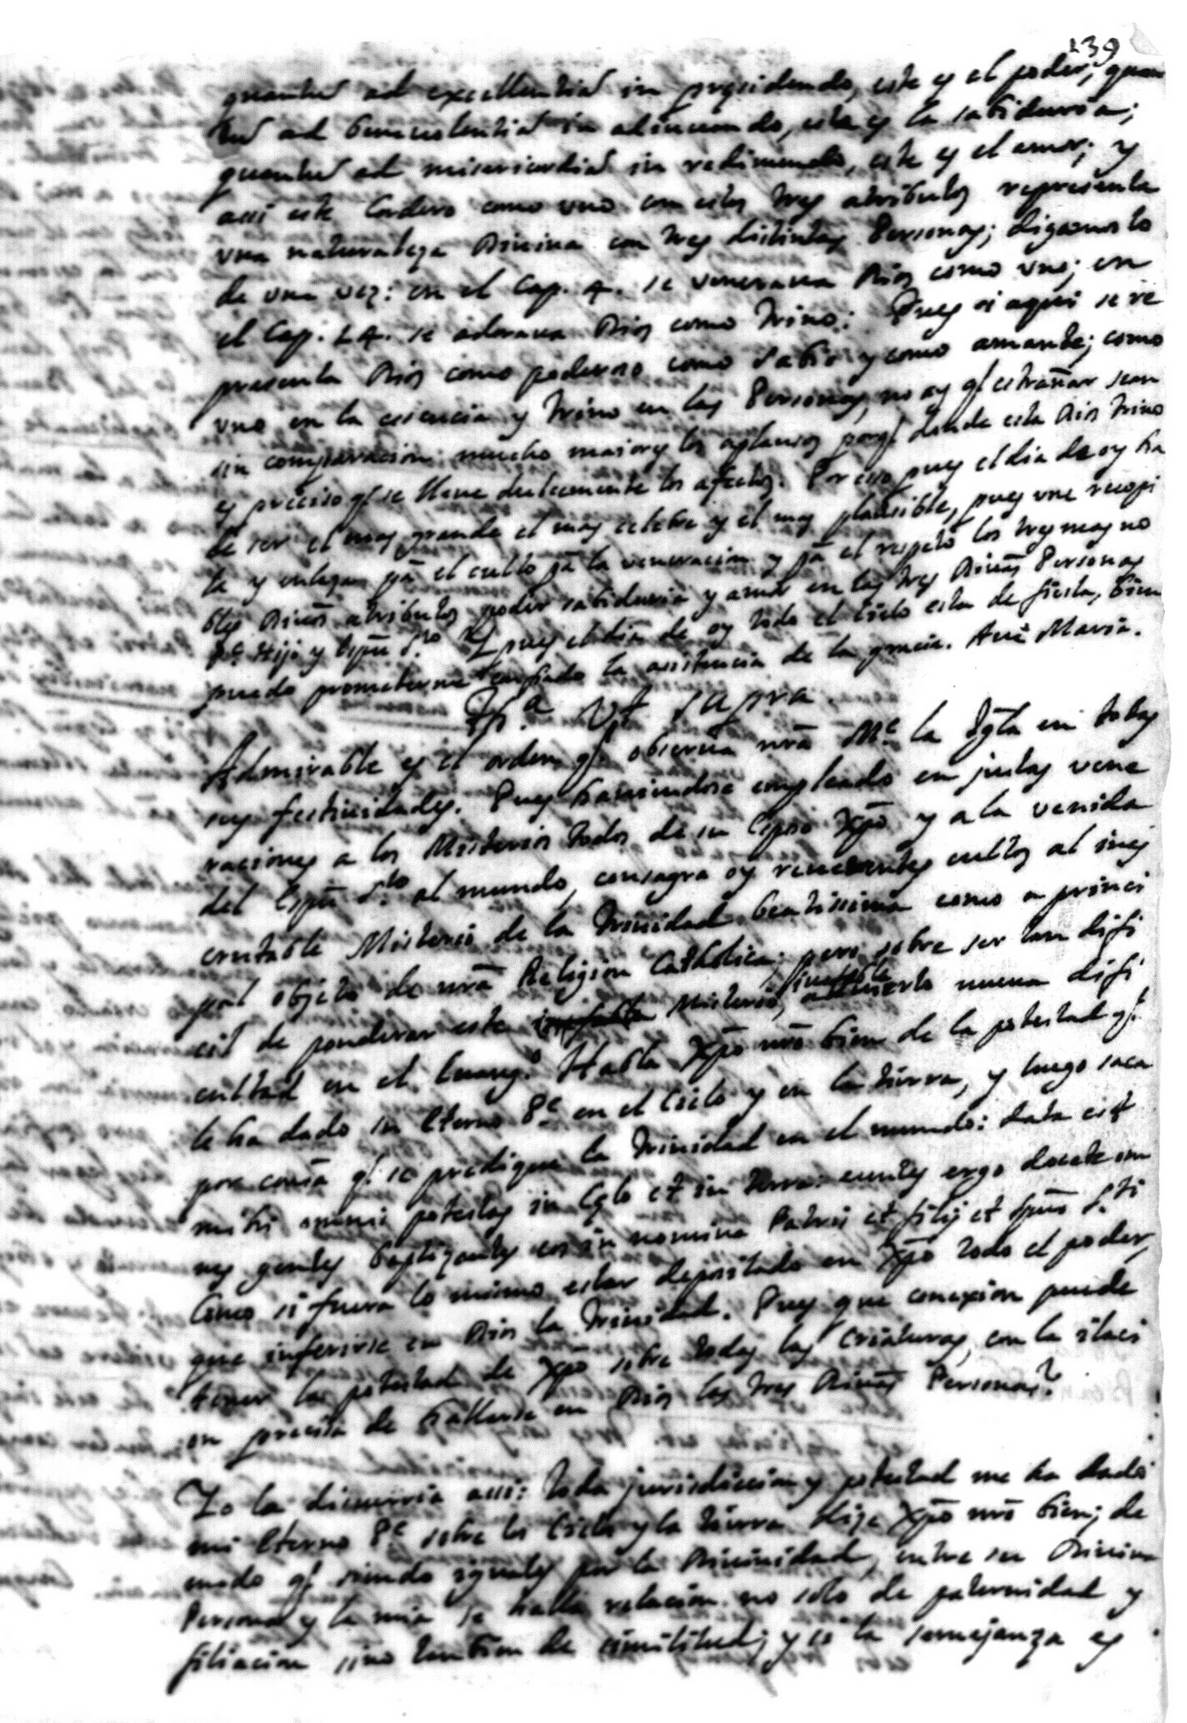 139
quantũ ad excellentiã in presidendo, este es el poder; quan
tũ ad benevolentiã in alliciendo, esta es la sabiduria;
quantũ ad misericordiã in redimendo, este es el amor; y
assi este Cordero como vno con estos tres atributos representa
vna naturaleza Divina con tres distintas Personas; digamoslo
de vna vez: en el Cap. 4. se venerava Dios como vno; en
el Cap. 14. se adorava Dios como trino: Pues si aqui se re
presenta Dios como poderoso como sabio y como amante; como
vno en la essencia y trino en las Personas, no ay q̃ estrañar sean
sin comparacion mucho maiores los aplausos porq̃ donde esta Dios trino
es preciso q̃ se lleve dulcemente los afectos. Por esso pues el dia de oy ha
de ser el mas grande el mas celebre y el mas plausible, pues vne recopi
la y enlaza pã el culto pã la veneracion y pã el respeto los tres mas no
bles Divinos atributos poder sabiduria y amor en las tres Divĩas Personas
Pe Hijo y Espũ Sto. Y pues el dia de oy todo el Cielo esta de fiesta, bien
puedo prometerme confiado la assistencia de la gracia. Ave Maria.
Tha. Vt supra
Admirable es el orden q̃ observa nrã Me la Yglã en todas
sus festividades. Pues haviendose empleado en justas vene
raciones a los Misterios todos de su Esposo Xpõ y a la venida
del Espũ Sto al mundo, consagra oy reverentes cultos al ines
crutable Misterio de la Trinidad beatissima como a princi
pal objeto de nrã Religion Catholica; pero sobre ser tan difi
cil de ponderar este inefable Misterio, advierto nueva difi
cultad en el Evangº. Habla Xpõ nrõ bien de la potestad q̃
le ha dado su Eterno Pe en el Cielo y en la tierra, y luego saca
por consã q̃ se predique la Trinidad en el mundo: data est
mihi omnis potestas in Cælo et in terra: euntes ergo docete om
nes gentes baptizantes eos in nomine Patris et filij et spũs Sti
Como si fuera lo mismo estar depositado en Xpõ todo el poder,
que inferirse en Dios la Trinidad. Pues que conexion puede
tener la potestad de Xpõ sobre todas las criaturas, con la ilaci
on precisa de hallarse en Dios las tres Divinas Personas?
Yo la discurria assi: toda jurisdiccion y potestad me ha dado
mi Eterno Pe sobre los Cielos y la tierra dize Xpõ nrõ bien; de
modo q̃ siendo iguales por la Divinidad, entre su Divina
Persona y la mia se halla relacion no solo de paternidad y
filiacion sino tambien de similitud; y si la semejanza es